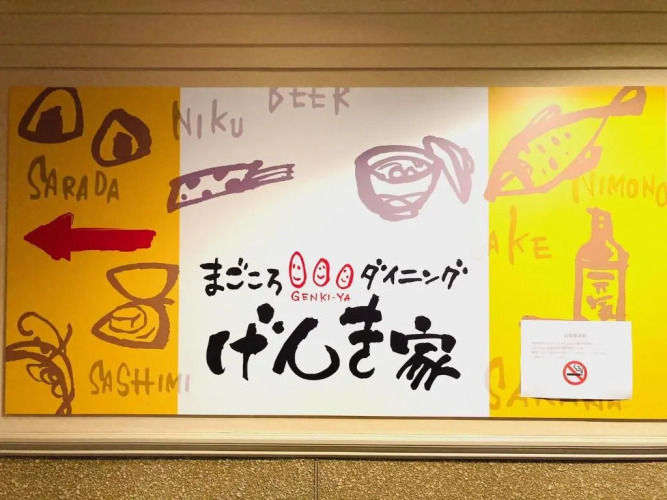 BEER
NIKU
SARADA
NIMONO
SAKE
まごころ GENKI-YA ダイニング
げんき家
SASHIMI